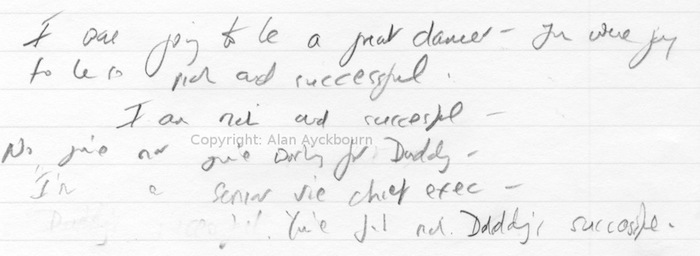 I was going to be a great dancer – You were going
to be so rich and successful.
I am rich and successful –
Copyright: Alan Ayckbourn
No you're not you're working for Daddy –
I'm a senior vice chief exec –
You're not. Daddy's successful.